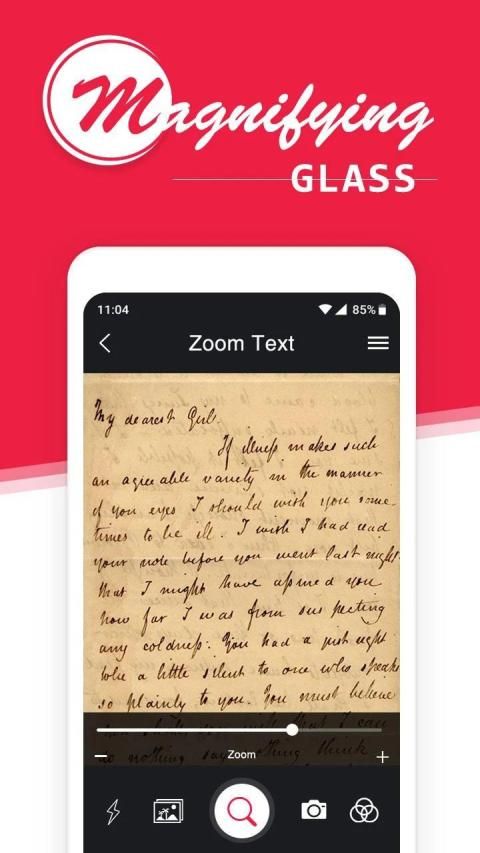 Magnifying
GLASS
11:04
85%
Zoom Text
My dearest Girl,
If illness makes such
an agreable variety in the manner
of you eyes I should wish you some-
times to be ill. I wish I had read
your note before you went last night
that I might have assured you
how far I was from suspecting
any coldness: You had a just right
to be a little silent to one who speaks
so plainly to you. You must believe
that I can
do nothing say nothing think
Zoom